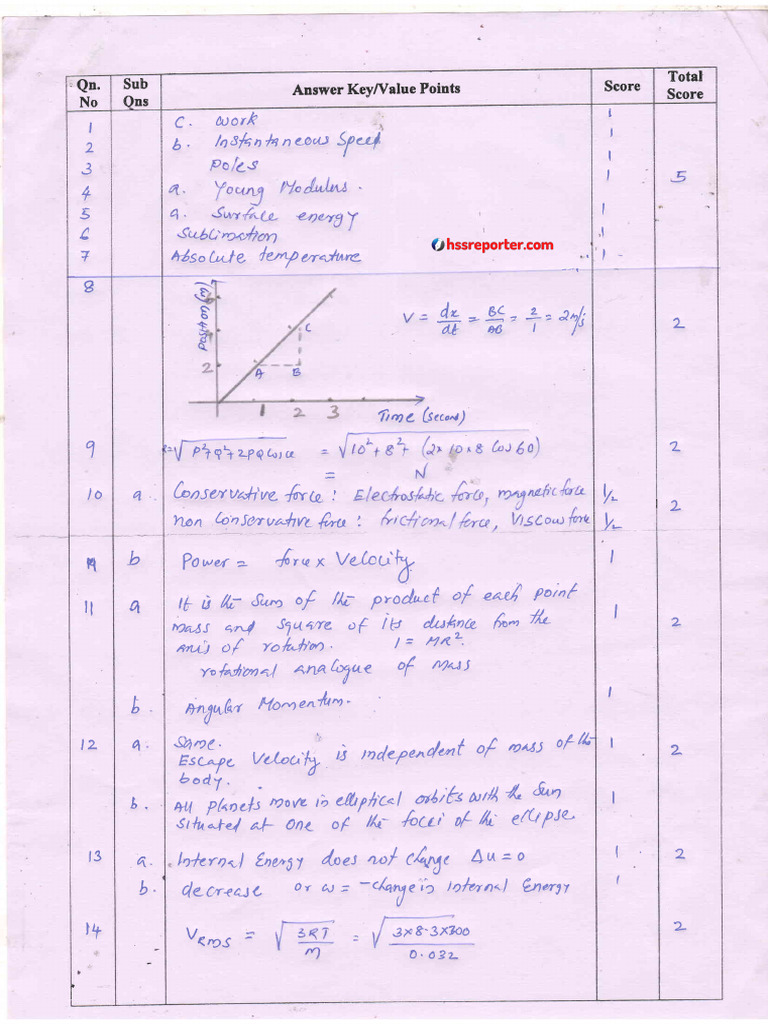 Qn. No | Sub Qns | Answer Key/Value Points | Score | Total Score
1 c. Work 1
2 b. Instantaneous Speed 1
3 Poles 1
4 a. Young Modulus. 1 5
5 a. Surface energy 1
6 Sublimation 1
hssreporter.com
7 Absolute temperature 1
8
Position (m)
V = dx/dt = BC/AB = 2/1 = 2m/s 2
C
2 A B
1 2 3
Time (second)
9 √P²+Q²+2PQ = √10²+8²+(2×10×8 Cos60) 2
= N
10 a. Conservative force: Electrostatic force, magnetic force 1/2 2
non Conservative force: frictional force, Viscow force 1/2
b Power = force × Velocity 1
11 a It is the Sum of the product of each point
mass and square of its distance from the 1 2
axis of rotation. I = MR².
rotational analogue of mass
b. Angular Momentum. 1
12 a. Same.
Escape Velocity is independent of mass of the 1 2
body.
b. All planets move in elliptical orbits with the Sun 1
Situated at one of the focii of the ellipse.
13 a. Internal Energy does not change Δu=0 1 2
b. decrease or w = -change in Internal Energy 1
14 VRMS = √3RT/M = √3×8.3×300/0.032 2